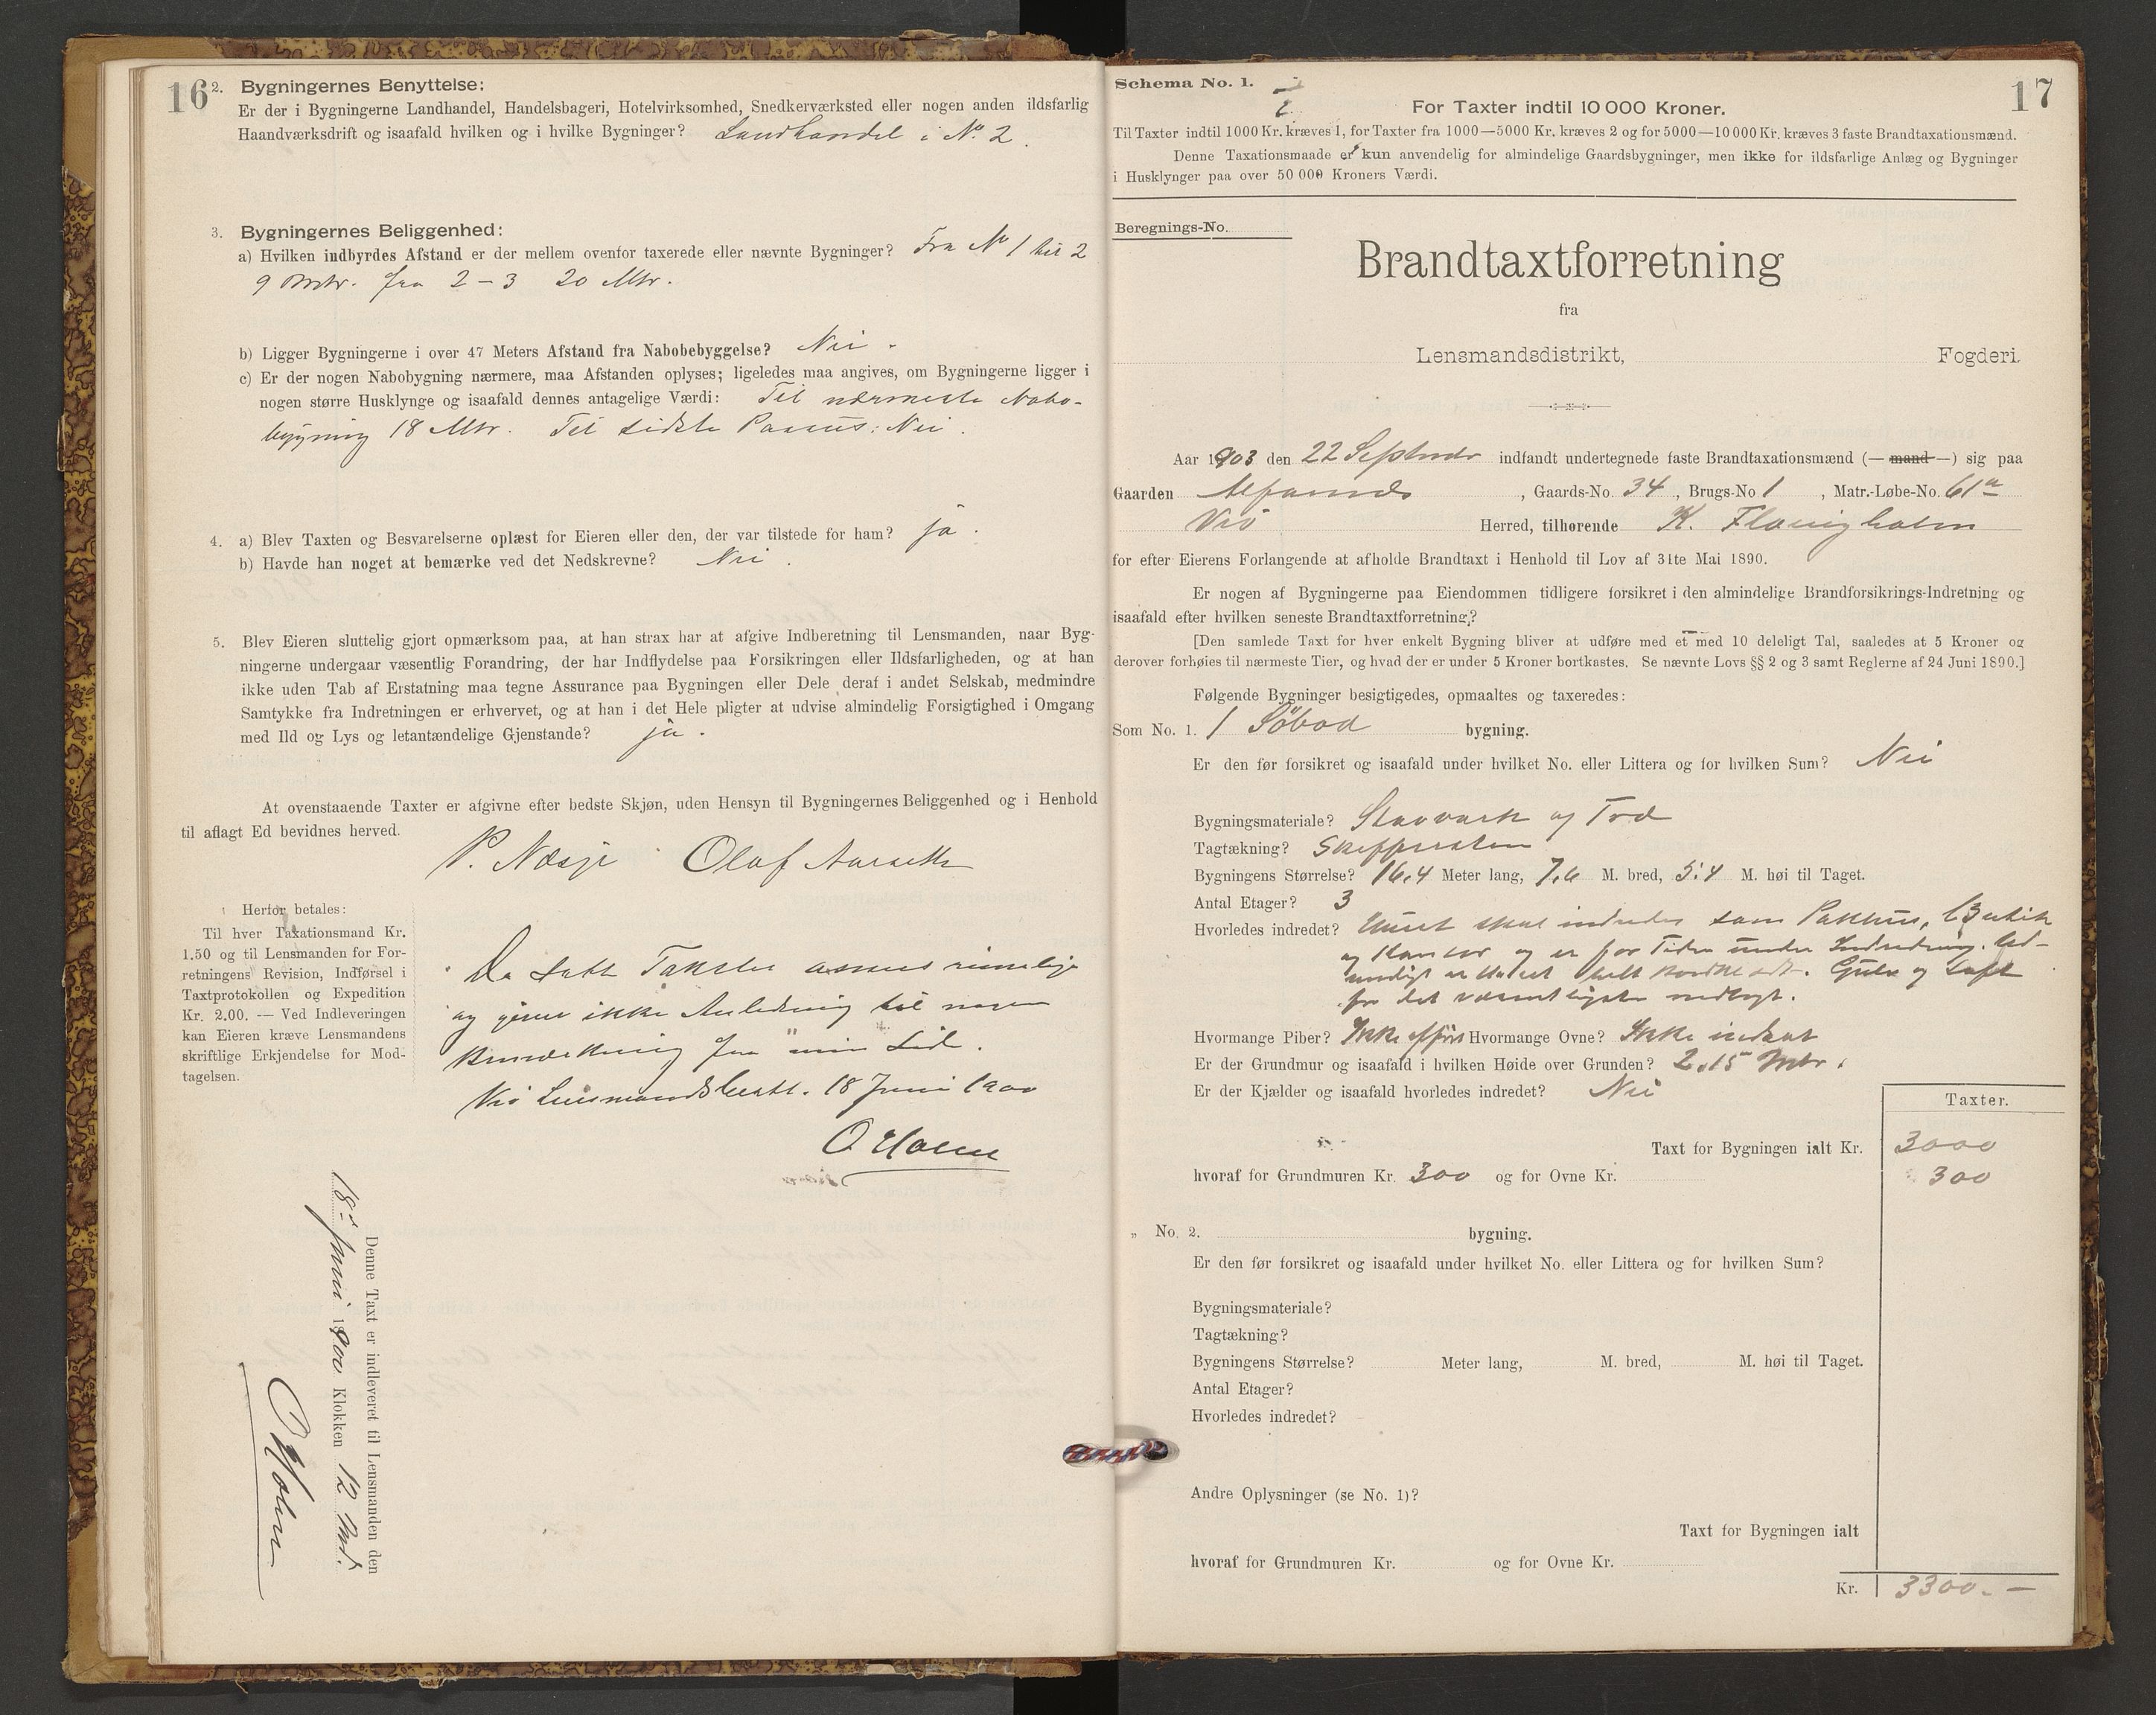 16
2. Bygningernes Benyttelse:
Er der i Bygningerne Landhandel, Handelsbageri, Hotelvirksomhed, Snedkerværksted eller nogen anden ildsfarlig
Haandværksdrift og isaafald hvilken og i hvilke Bygninger? Landhandel i No. 2.
3. Bygningernes Beliggenhed:
a) Hvilken indbyrdes Afstand er der mellem ovenfor taxerede eller nævnte Bygninger? Fra No 1 til 2
9 Mtr. fra 2 – 3 20 Mtr.
b) Ligger Bygningerne i over 47 Meters Afstand fra Nabobebyggelse? Nei.
c) Er der nogen Nabobygning nærmere, maa Afstanden oplyses; ligeledes maa angives, om Bygningerne ligger i
nogen større Husklynge og isaafald dennes antagelige Værdi: Til nærmeste Nabo-
bygning 18 Mtr. Til sidste Passus: Nei.
4. a) Blev Taxten og Besvarelserne oplæst for Eieren eller den, der var tilstede for ham? ja.
b) Havde han noget at bemærke ved det Nedskrevne? Nei.
5. Blev Eieren sluttelig gjort opmærksom paa, at han strax har at afgive Indberetning til Lensmanden, naar Byg-
ningerne undergaar væsentlig Forandring, der har Indflydelse paa Forsikringen eller Ildsfarligheden, og at han
ikke uden Tab af Erstatning maa tegne Assurance paa Bygningen eller Dele deraf i andet Selskab, medmindre
Samtykke fra Indretningen er erhvervet, og at han i det Hele pligter at udvise almindelig Forsigtighed i Omgang
med Ild og Lys og letantændelige Gjenstande? ja.
At ovenstaaende Taxter er afgivne efter bedste Skjøn, uden Hensyn til Bygningernes Beliggenhed og i Henhold
til aflagt Ed bevidnes herved.
P. Næsje Olaf Aarseth
Herfor betales:
Til hver Taxationsmand Kr.
1.50 og til Lensmanden for For-
retningens Revision, Indførsel i
Taxtprotokollen og Expedition
Kr. 2.00. — Ved Indleveringen
kan Eieren kræve Lensmandens
skriftlige Erkjendelse for Mod-
tagelsen.
De satte Takster ansees rimelige
og giver ikke Anledning til nogen
Bemærkning fra min Side.
Lensmandsbestl. 18 Juni 1900
O Holm
Denne Taxt er indleveret til Lensmanden den
18de Juni 1900 Klokken 12 Md.
O Holm
17
Schema No. 1.
For Taxter indtil 10 000 Kroner.
Til Taxter indtil 1000 Kr. kræves 1, for Taxter fra 1000—5000 Kr. kræves 2 og for 5000—10 000 Kr. kræves 3 faste Brandtaxationsmænd.
Denne Taxationsmaade er kun anvendelig for almindelige Gaardsbygninger, men ikke for ildsfarlige Anlæg og Bygninger
i Husklynger paa over 50 000 Kroners Værdi.
Beregnings-No.
Brandtaxtforretning
fra
Lensmandsdistrikt, Fogderi.
Aar 1903 den 22 September indfandt undertegnede faste Brandtaxationsmænd (— mand —) sig paa
Gaarden , Gaards-No. 34, Brugs-No 1, Matr.-Løbe-No. 61a
Herred, tilhørende K.
for efter Eierens Forlangende at afholde Brandtaxt i Henhold til Lov af 31te Mai 1890.
Er nogen af Bygningerne paa Eiendommen tidligere forsikret i den almindelige Brandforsikrings-Indretning og
isaafald efter hvilken seneste Brandtaxtforretning?
[Den samlede Taxt for hver enkelt Bygning bliver at udføre med et med 10 deleligt Tal, saaledes at 5 Kroner og
derover forhøies til nærmeste Tier, og hvad der er under 5 Kroner bortkastes. Se nævnte Lovs §§ 2 og 3 samt Reglerne af 24 Juni 1890.]
Følgende Bygninger besigtigedes, opmaaltes og taxeredes:
Som No. 1. 1 Söbod bygning.
Er den før forsikret og isaafald under hvilket No. eller Littera og for hvilken Sum? Nei
Bygningsmateriale? Stavværk og Træ
Tagtækning? Skiffersten
Bygningens Størrelse? 16,4 Meter lang, 7,6 M. bred, 5,4 M. høi til Taget.
Antal Etager? 3
Hvorledes indredet? Huset skal indredes som Pakhus, Butik
og Kontor og er for Tiden under Indredning. Ud-
vendigt er Huset helt Gulv og Loft
for det væsentligste nedlagt.
Hvormange Piber? Ikke opført Hvormange Ovne? Ikke indsat
Er der Grundmur og isaafald i hvilken Høide over Grunden? 2,15 Mtr.
Er der Kjælder og isaafald hvorledes indredet? Nei
Taxter.
Taxt for Bygningen ialt Kr. 3000
hvoraf for Grundmuren Kr. 300 og for Ovne Kr. 300
„ No. 2. bygning.
Er den før forsikret og isaafald under hvilket No. eller Littera og for hvilken Sum?
Bygningsmateriale?
Tagtækning?
Bygningens Størrelse? Meter lang, M. bred, M. høi til Taget.
Antal Etager?
Hvorledes indredet?
Andre Oplysninger (se No. 1)?
Taxt for Bygningen ialt
hvoraf for Grundmuren Kr. og for Ovne Kr.
Kr. 3300.—